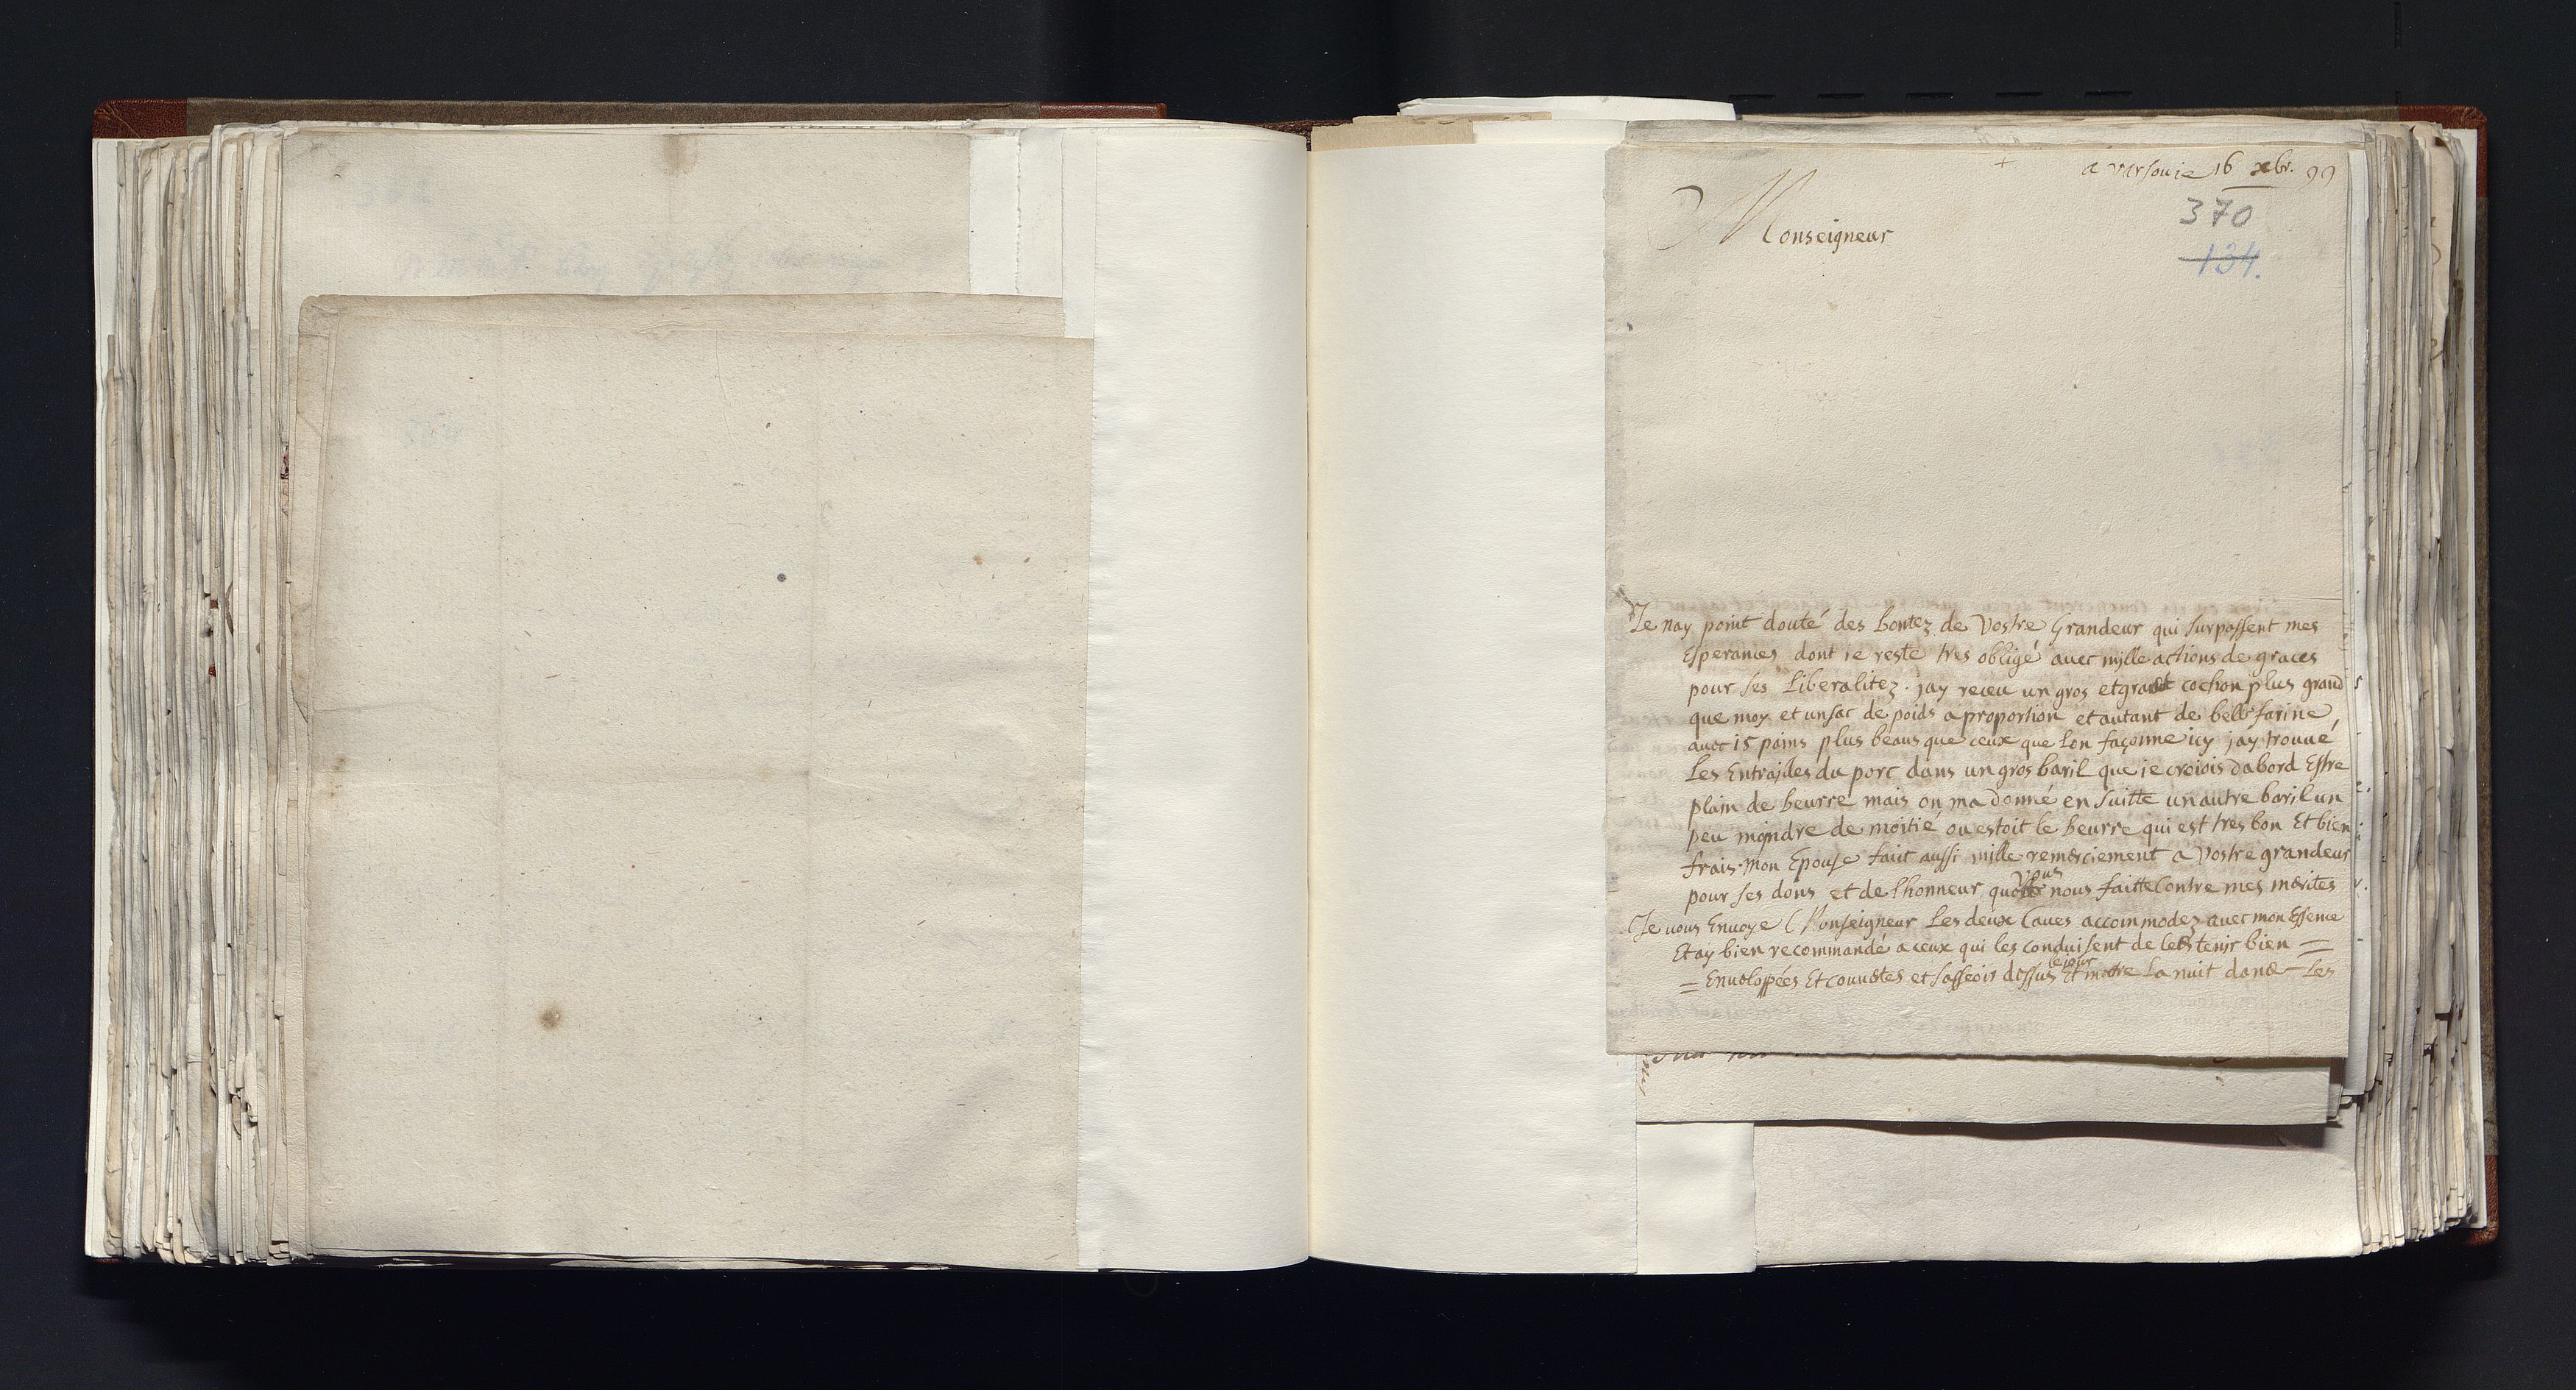 + a varsouie 16 xbr. 99
370
134.
Monseigneur
Je nay point douté des bontez de Vostre Grandeur qui surpassent mes
Esperances dont ie reste tres obligé auec mille actions de graces
pour ses Liberalitez. jay receu un gros et grand cochon plus grand
que moy et un sac de poids a proportion et autant de belle farine
auec 15 pains plus beaus que ceux que lon façonne icy jay trouué
les Entrailles du porc dans un gros baril que ie croiois dabord Estre
plain de beurre mais on ma donné en suitte un autre baril un
peu moindre de moitié ou estoit le beurre qui est tres bon Et bien
frais. Mon Epouse faict aussi mille remerciement a Vostre grandeur
vous
pour ses dons et de lhonneur que nous faitte Contre mes merites
Je vous Enuoye Monseigneur Les deux Caues accommodez auec mon Essence
Et ay bien recommandé a ceux qui les conduisent de les tenir bien =
le jour
= Enueloppées Et couuertes et sasseoir dessus Et mettre la nuit dans les